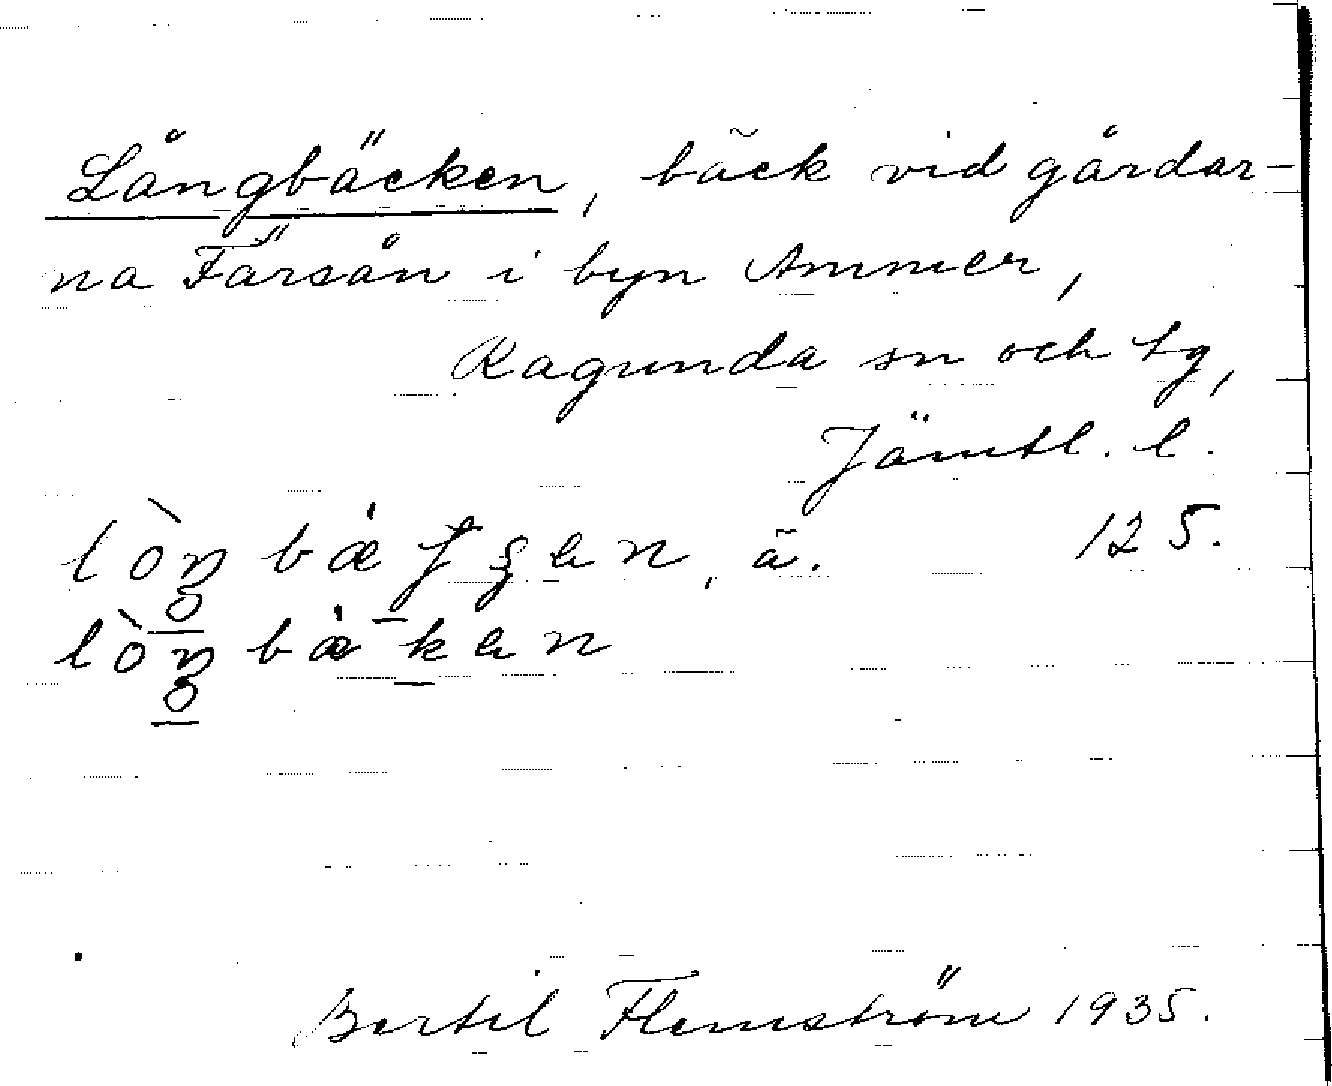 Långbäcken, bäck vid gårdar-
na Färsån i byn Ammer,
Ragunda sn och tg,
Jämtl. l.
125.
Bertil Flemström 1935.